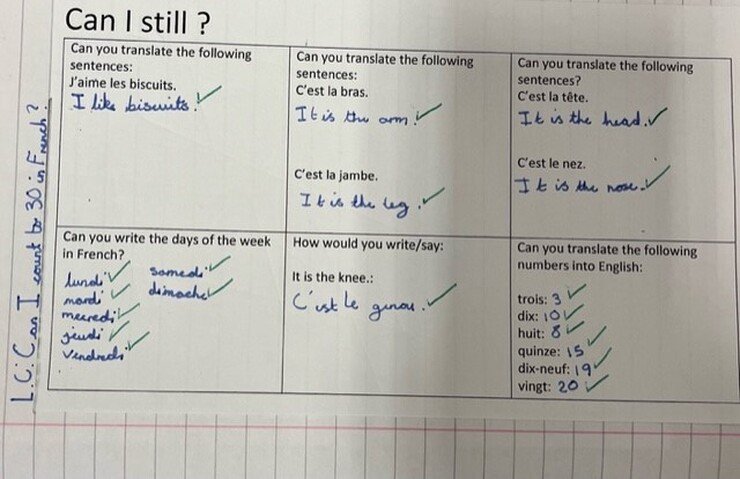 Can I still ?
L.C: Can I count to 30 in French?
Can you translate the following
sentences:
J'aime les biscuits.
I like biscuits.
Can you translate the following
sentences:
C'est la bras.
It is the arm.
C'est la jambe.
It is the leg.
Can you translate the following
sentences?
C'est la tête.
It is the head.
C'est le nez.
It is the nose.
Can you write the days of the week
in French?
lundi
mardi
mecredi
jeudi
Vendredi
samedi
dimache
How would you write/say:
It is the knee.:
C'est le genou.
Can you translate the following
numbers into English:
trois: 3
dix: 10
huit: 8
quinze: 15
dix-neuf: 19
vingt: 20